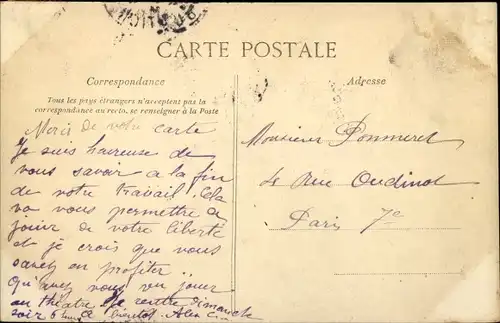 CARTE POSTALE
Correspondance
Tous les pays étrangers n'acceptent pas la
correspondance au recto, se renseigner à la Poste
Merci de votre carte
Je suis heureuse de
vous savoir à la fin
de votre travail. Cela
va vous permettre de
jouir de votre liberté
et je crois que vous
savez en profiter..
qu'avez vous vu jouer
au théâtre. Je rentre dimanche
soir 6 A bientôt. Alex
Adresse
Monsieur Pommeret
4 Rue Oudinot
Paris 7e